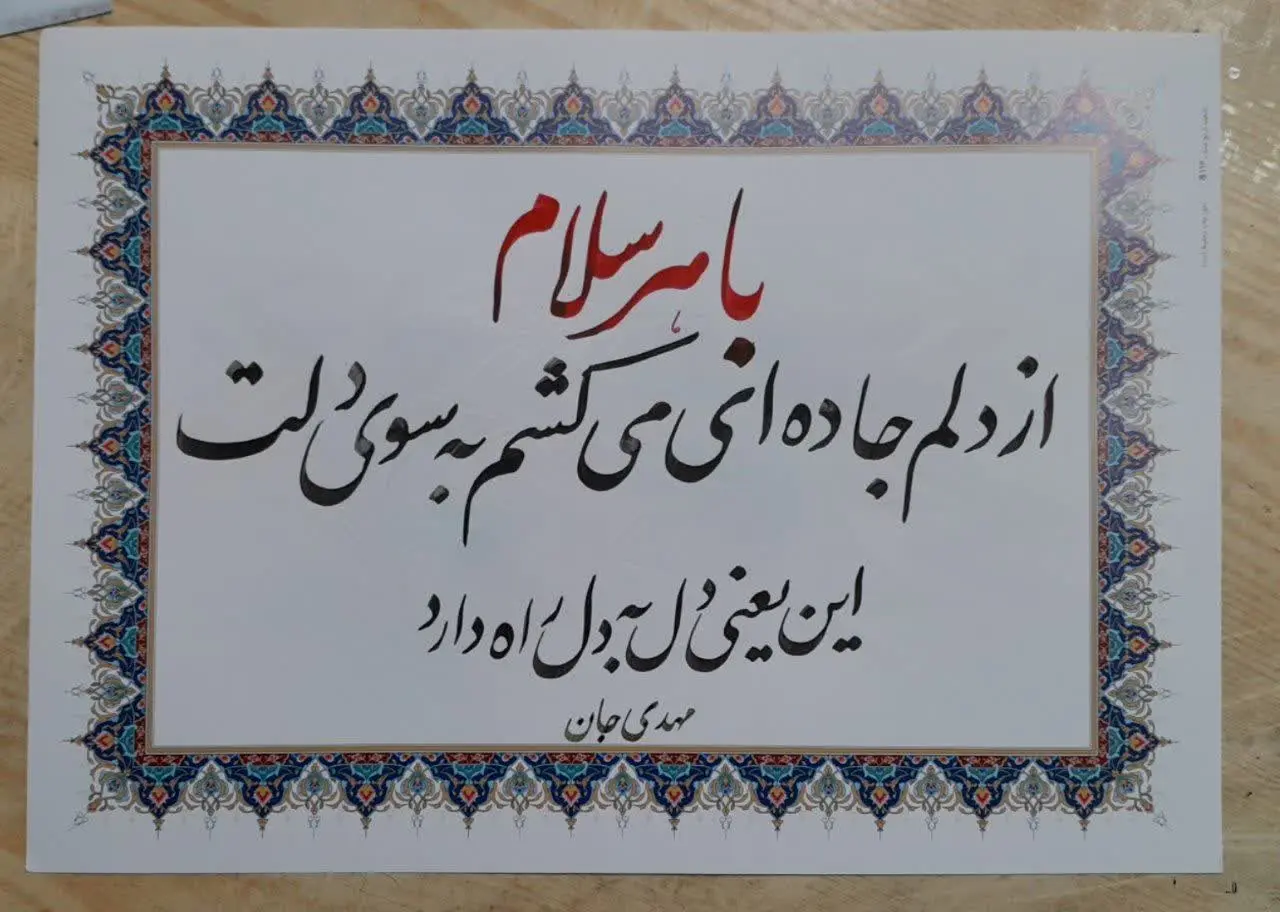 با هر سلام
از دلم جاده ائی می کشم به سوی دلت
این یعنی دل به دل راه دارد
مهدی جان